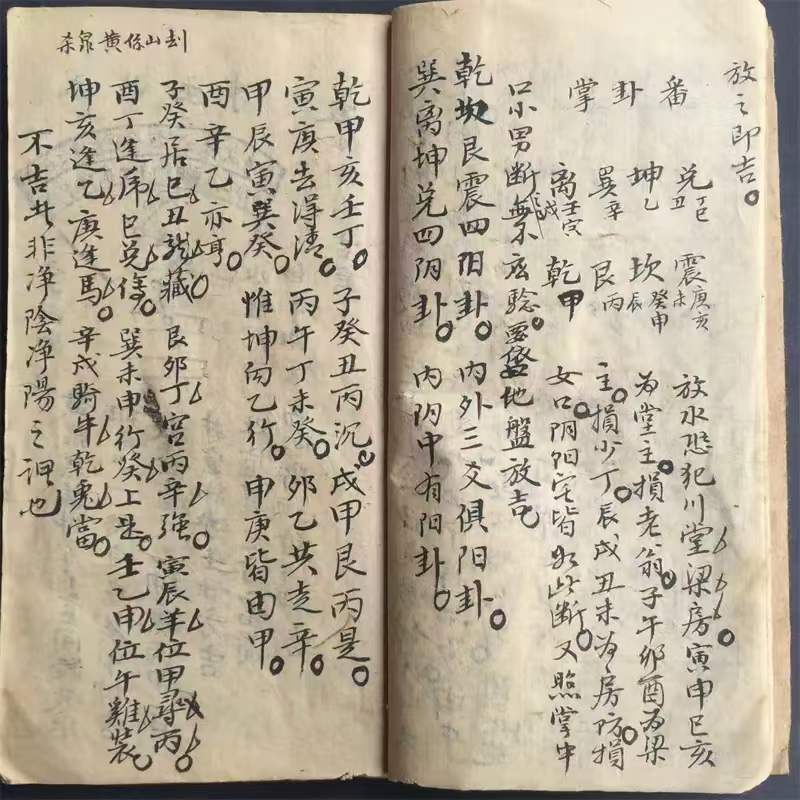 放之即吉。
番卦掌
兑丁巳丑 坤乙 巽辛 离壬寅戌
震庚亥未 坎癸申辰 艮丙 乾甲
放水恐犯川堂梁房。寅申巳亥
为堂主。损老翁。子午卯酉为梁
主。损少丁。辰戌丑未为房防损
女口。阴阳宅皆如此断。又照掌中
口小男断無不应騐。要盘地盘放吉。
乾坎艮震四阳卦。内外三爻俱阳卦。
巽离坤兑四阴卦。内阴中有阳卦。
刦山黄泉杀
乾甲亥壬丁。子癸丑丙沉。戌甲艮丙是。
寅庚去淂清。丙午丁未癸。卯乙共走辛。
甲辰寅巽癸。惟坤向乙行。申庚皆由甲。
酉辛乙亦亨。
子癸居巳丑龙藏。艮卯丁宫丙辛強。寅辰羊位甲尋丙。
酉丁逢虎巳兑傍。巽未申行癸上是。壬乙申位午雞裝。
坤亥逢乙庚逢馬。辛戌騎牛乾兎當。
不吉此非净陰净陽之理也